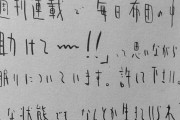 週刊連載で毎日布団の中
助けて〜〜!!って思いながら
眠りについています。許して下さい。
な状態でなんとか生きて